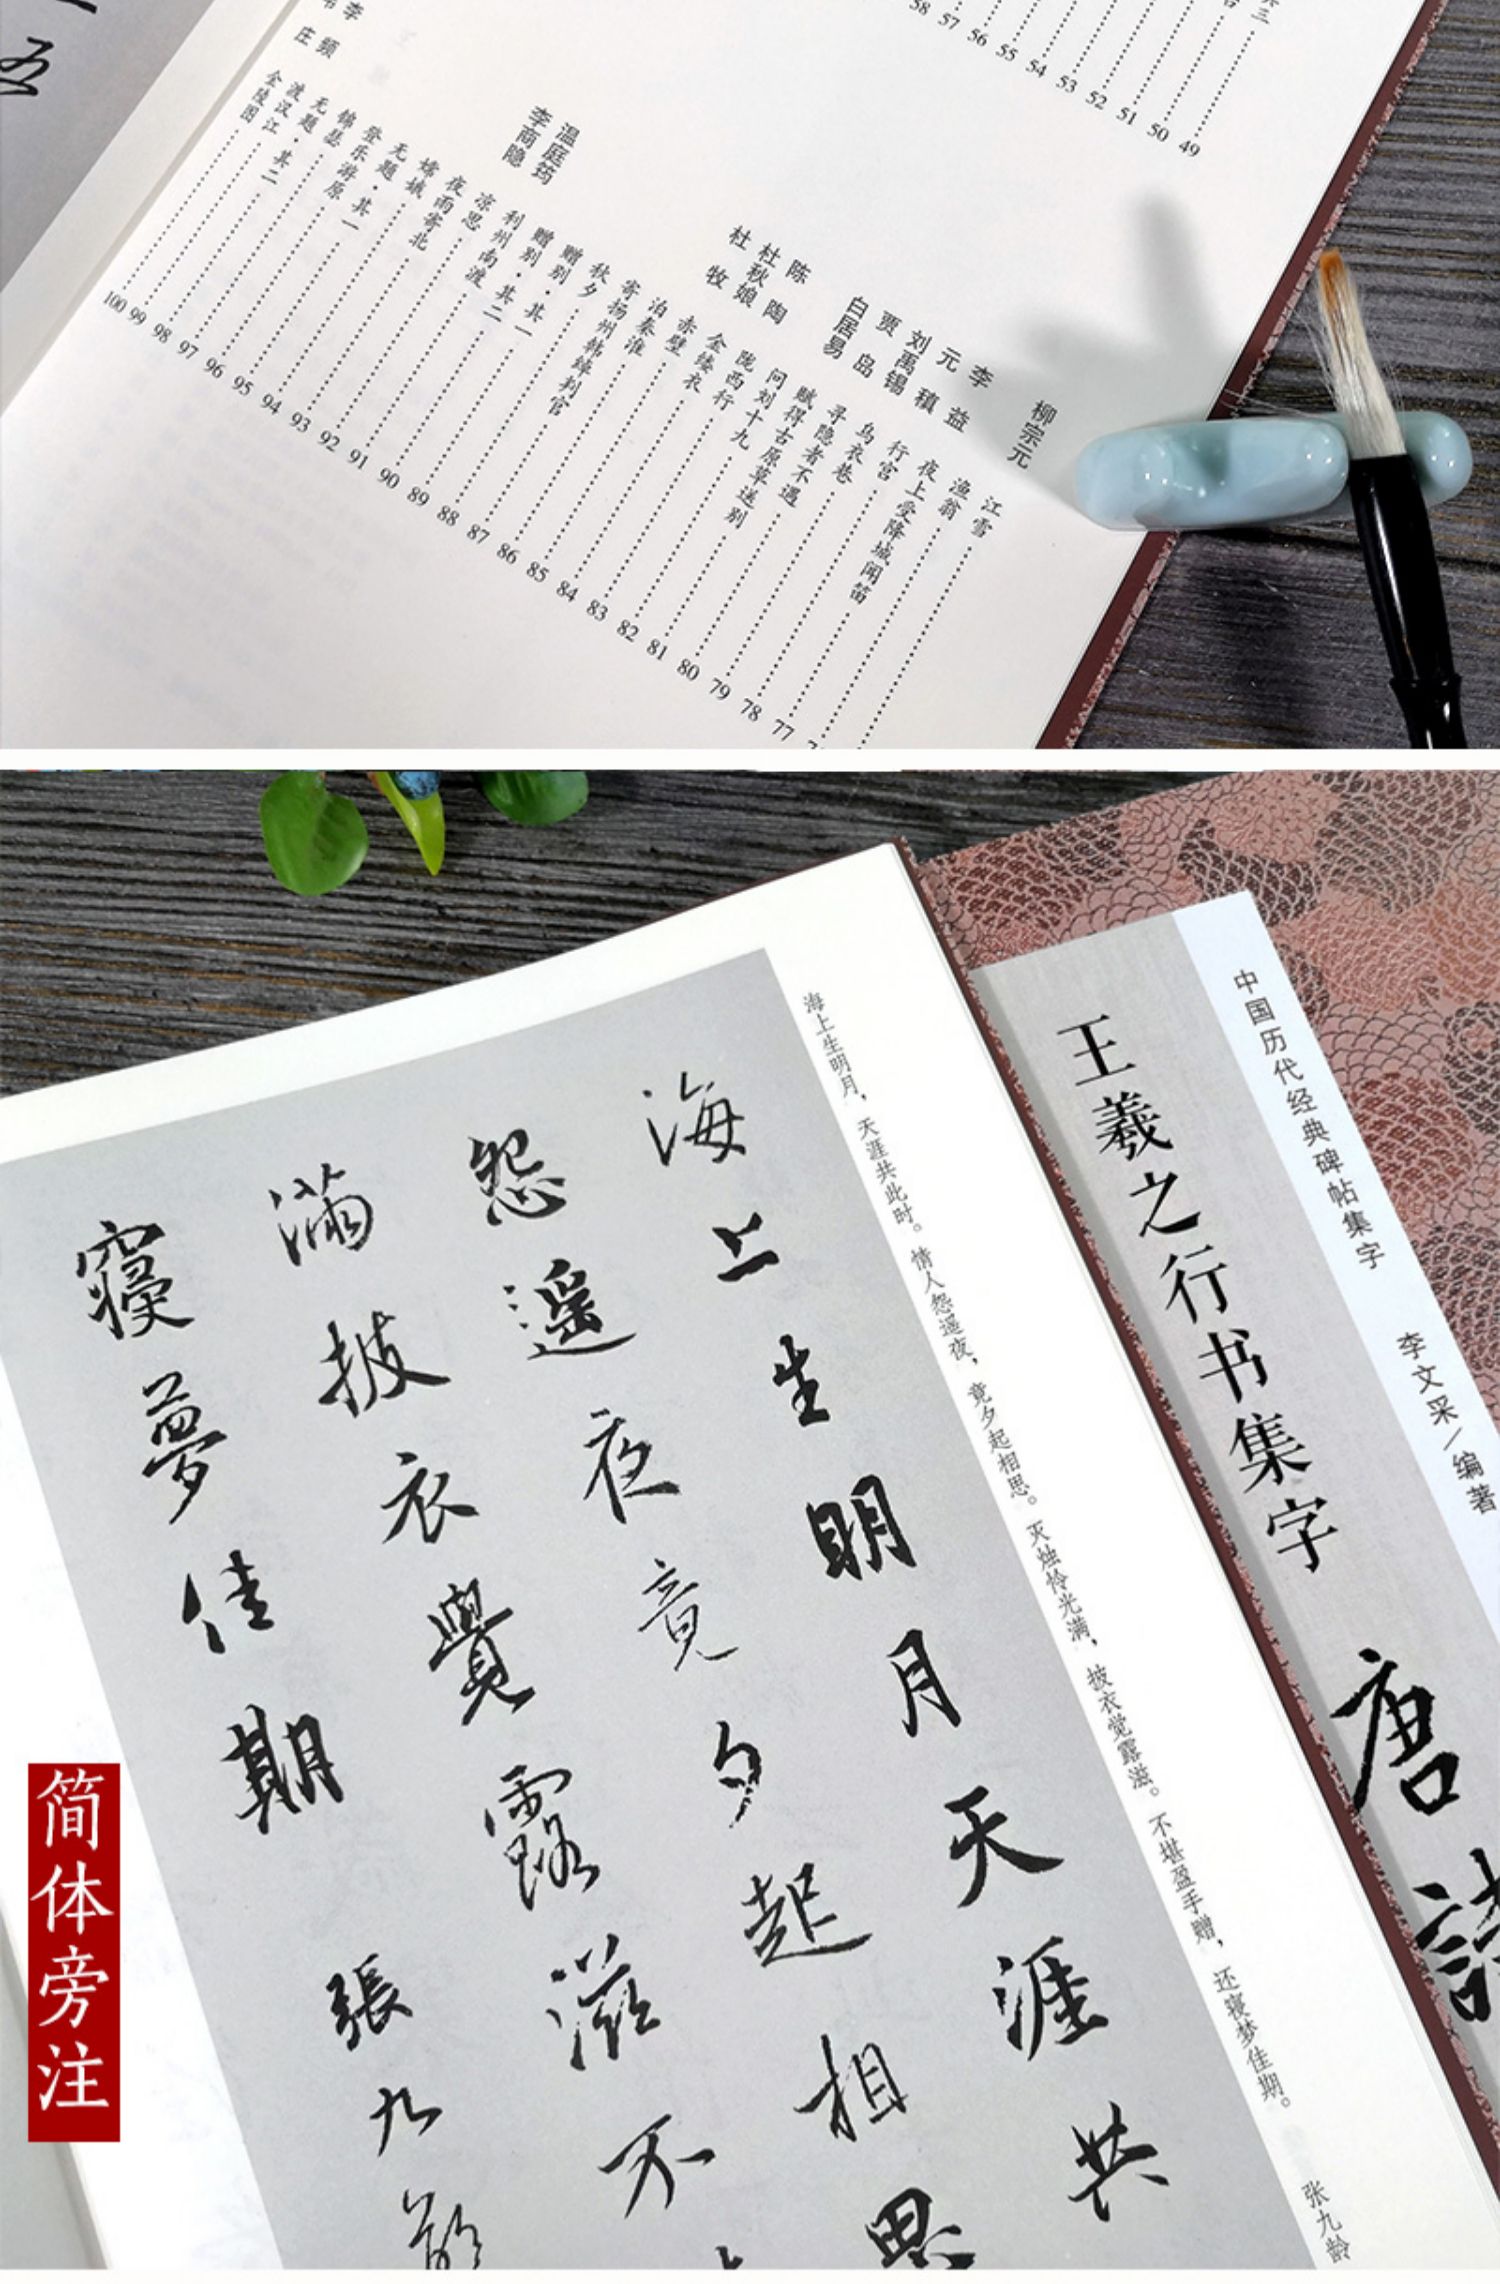 五
三
58 57 56 55 54 53 52 51 50 49
柳宗元
江雪
渔翁
李益
夜上受降城闻笛
元稹
行宫
刘禹锡
乌衣巷
贾岛
寻隐者不遇
白居易
赋得古原草送别
问刘十九
陈陶
陇西行
杜秋娘
金缕衣
杜牧
赤壁
泊秦淮
寄扬州韩绰判官
秋夕
赠别·其一
赠别·其二
温庭筠
利州南渡
李商隐
凉思
夜雨寄北
嫦娥
无题
登乐游原
锦瑟
无题·其一
李频
渡汉江
庄
金陵图
100 99 98 97 96 95 94 93 92 91 90 89 88 87 86 85 84 83 82 81 80 79 78 77
中国历代经典碑帖集字
李文采/编著
王羲之行书集字
唐
诗
海上生明月，天涯共此时。情人怨遥夜，竟夕起相思。灭烛怜光满，披衣觉露滋。不堪盈手赠，还寝梦佳期。
张九龄
海上生明月天涯共
怨遥夜竟夕起相思
滿披衣覺露滋不
寝夢佳期
張九齡
简体旁注